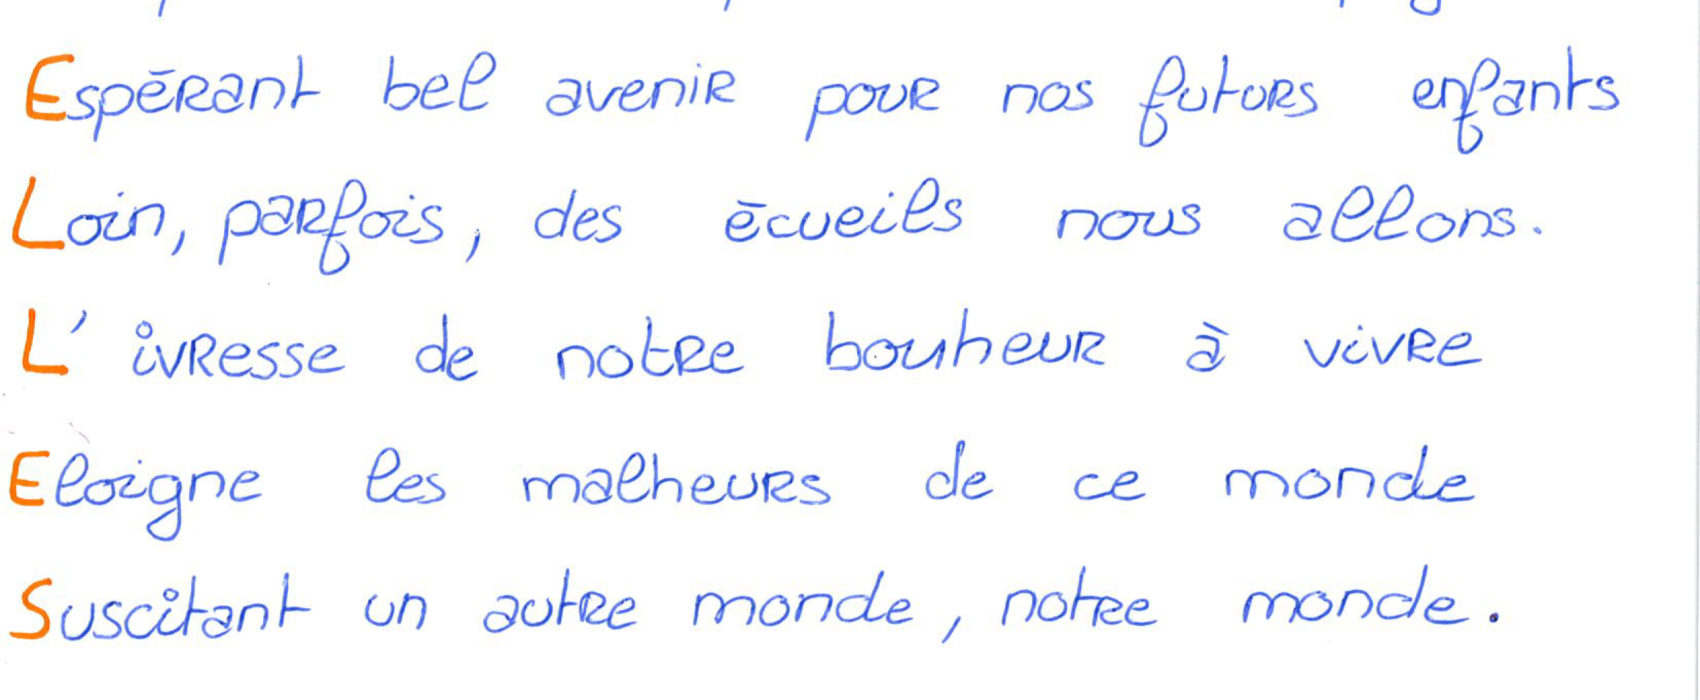 Espérant bel avenir pour nos futurs enfants
Loin, parfois, des écueils nous allons.
L'ivresse de notre bonheur à vivre
Eloigne les malheurs de ce monde
Suscitant un autre monde, notre monde.